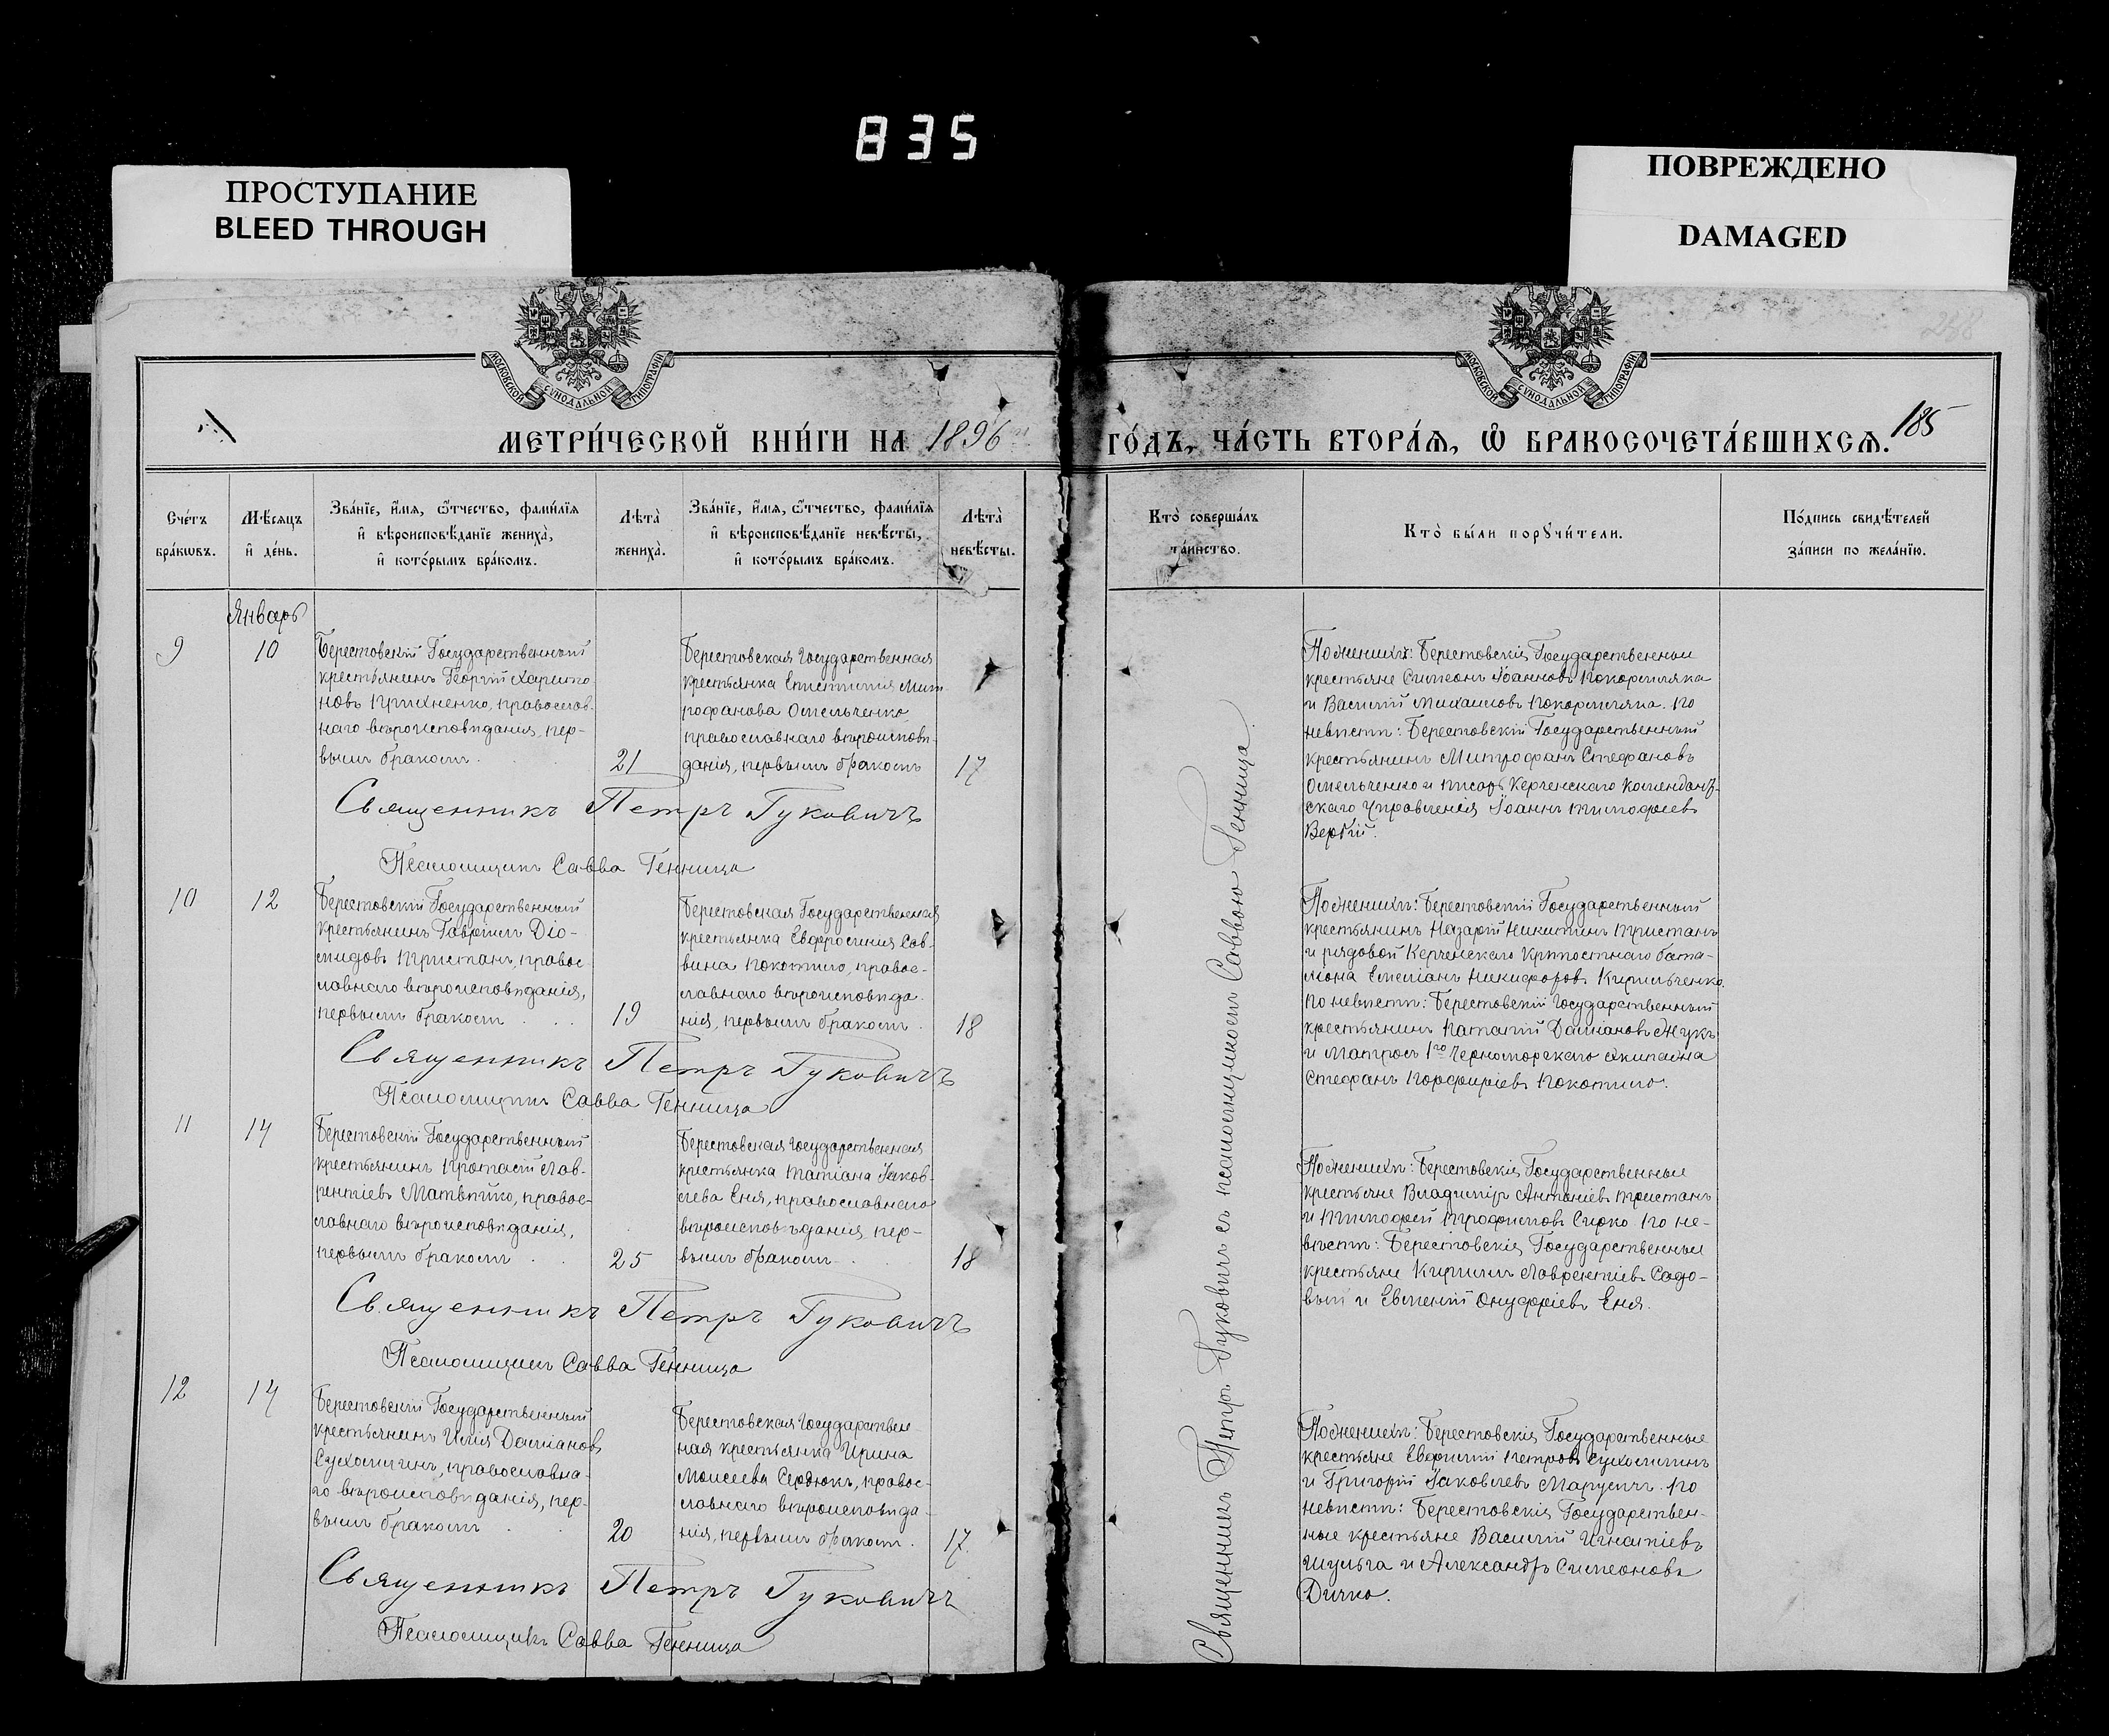 835
ПРОСТУПАНИЕ
BLEED THROUGH
ПОВРЕЖДЕНО
DAMAGED
МОСКОВСКОЙ СѴНОДАЛЬНОЙ ТИПОГРАФІИ
МОСКОВСКОЙ СѴНОДАЛЬНОЙ ТИПОГРАФІИ
185
МЕТРИ́ЧЕСКОЙ КНИ́ГИ НА 1896 ГО́ДЪ, ЧА́СТЬ ВТОРА́Ѧ, Ѽ БРАКОСОЧЕТА́ВШИХСѦ.
Сче́тъ бра́кѡвъ.
Мѣ́сяцъ и҆ де́нь.
Зва́нїе, и҆́мѧ, ѻ҆́тчество, фами́лїѧ
и҆ вѣроисповѣ́данїе жениха̀,
и҆ кото́рымъ бра́комъ.
Лѣта̀ жениха̀.
Зва́нїе, и҆́мѧ, ѻ҆́тчество, фами́лїѧ
и҆ вѣроисповѣ́данїе невѣ́сты,
и҆ кото́рымъ бра́комъ.
Лѣта̀ невѣ́сты.
Кто̀ соверша́лъ
та́инство.
Кто̀ бы́ли порꙋчи́тели.
По́дпись свидѣ́телей
за́писи по жела́нїю.
Январь
9
10
Берестовскій Государственный
крестьянинъ Георгій Харито-
новъ Прихненко, православ-
наго вѣроисповѣданія, пер-
вымъ бракомъ.
21
Берестовская Государственная
крестьянка Епистимія Мит-
рофанова Омельченко,
православнаго вѣроисповѣ-
данія, первымъ бракомъ
17
Священникъ Петръ Гуковичъ
Псаломщикъ Савва Генница
По женихѣ: Берестовскія Государственные
крестьяне Симеонъ Іоанновъ Покормляка
и Василій Михаиловъ Покормляка. По
невѣстѣ: Берестовскій Государственный
крестьянинъ Митрофанъ Стефановъ
Омельченко и писарь Керченскаго Комендант-
скаго Управленія Іоаннъ Тимофеевъ
Вербій.
10
12
Берестовскій Государственный
крестьянинъ Гавріилъ Діо-
мидовъ Пристанъ, правос-
лавнаго вѣроисповѣданія,
первымъ бракомъ
19
Берестовская Государственная
крестьянка Евфросинія Сав-
вина Покотило, правос-
лавнаго вѣроисповѣда-
нія, первымъ бракомъ.
18
Священникъ Петръ Гуковичъ
Псаломщикъ Савва Генница
По женихѣ: Берестовскій Государственный
крестьянинъ Назарій Никитинъ Пристанъ
и рядовой Керченскаго Крѣпостнаго бата-
ліона Емеліанъ Никифоровъ Кирильченко.
По невѣстѣ: Берестовскій Государственный
крестьянинъ Ипатій Даміановъ Жукъ
и Матросъ 1го Черноморскаго экипажа
Стефанъ Порфиріевъ Покотило.
11
14
Берестовскій Государственный
крестьянинъ Протасій Лав-
рентіевъ Матвѣйко, правос-
лавнаго вѣроисповѣданія,
первымъ бракомъ
25
Берестовская Государственная
крестьянка Татіана Іаков-
лева Еня, православнаго
вѣроисповѣданія, пер-
вымъ бракомъ
18
Священникъ Петръ Гуковичъ
Псаломщикъ Савва Генница
По женихѣ: Берестовскія Государственные
крестьяне Владиміръ Антоніевъ Пристанъ
и Тимофей Трофимовъ Сирко. По не-
вѣстѣ: Берестовскія Государственные
крестьяне Кириллъ Лаврентіевъ Садо-
вый и Евгеній Онуфріевъ Еня.
12
14
Берестовскій Государственный
крестьянинъ Илія Даміановъ
Сухомлинъ, православна-
го вѣроисповѣданія, пер-
вымъ бракомъ
20
Берестовская Государствен-
ная крестьянка Ирина
Моисеева Сердюкъ, правос-
лавнаго вѣроисповѣда-
нія, первымъ бракомъ.
17.
Священникъ Петръ Гуковичъ
Псаломщикъ Савва Генница
По женихѣ: Берестовскія Государственные
крестьяне Евфимій Петровъ Сухомлинъ
и Григорій Іаковлевъ Марусичъ. По
невѣстѣ: Берестовскія Государствен-
ные крестьяне Василій Игнатіевъ
Шульга и Александръ Симеоновъ
Дичко.
Священникъ Петръ Гуковичъ съ псаломщикомъ Саввою Генница.